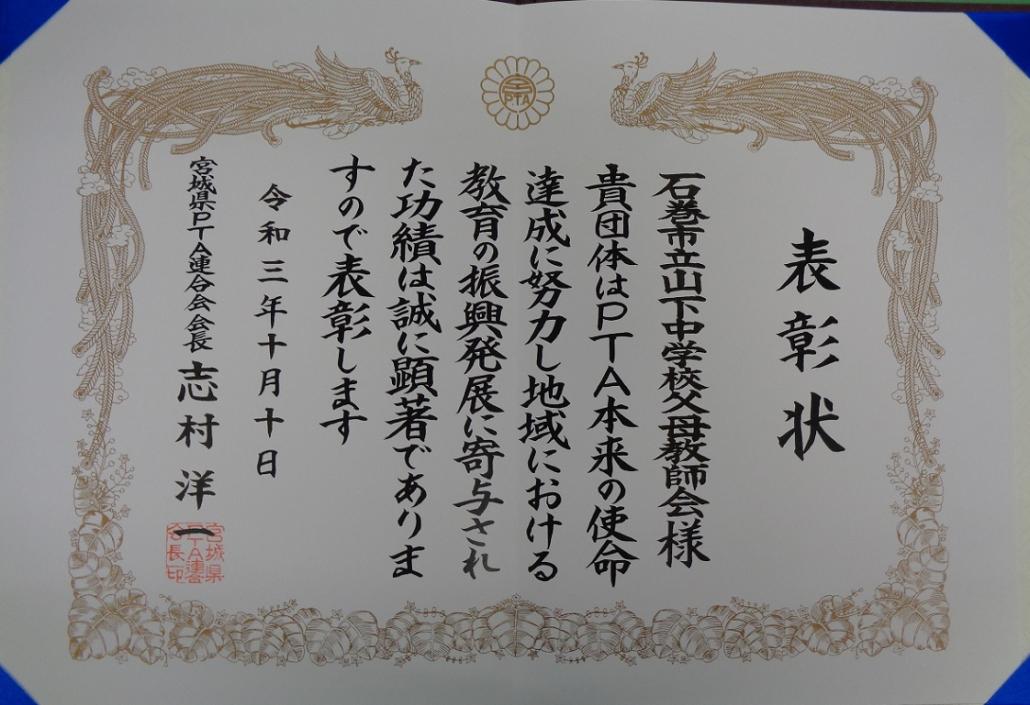 PTA
表彰状
石巻市立山下中学校父母教師会様
貴団体はPTA本来の使命
達成に努力し地域における
教育の振興発展に寄与され
た功績は誠に顕著でありま
すので表彰します
令和三年十月十日
宮城県PTA連合会会長 志村洋一
宮城県
PTA連合
会長印